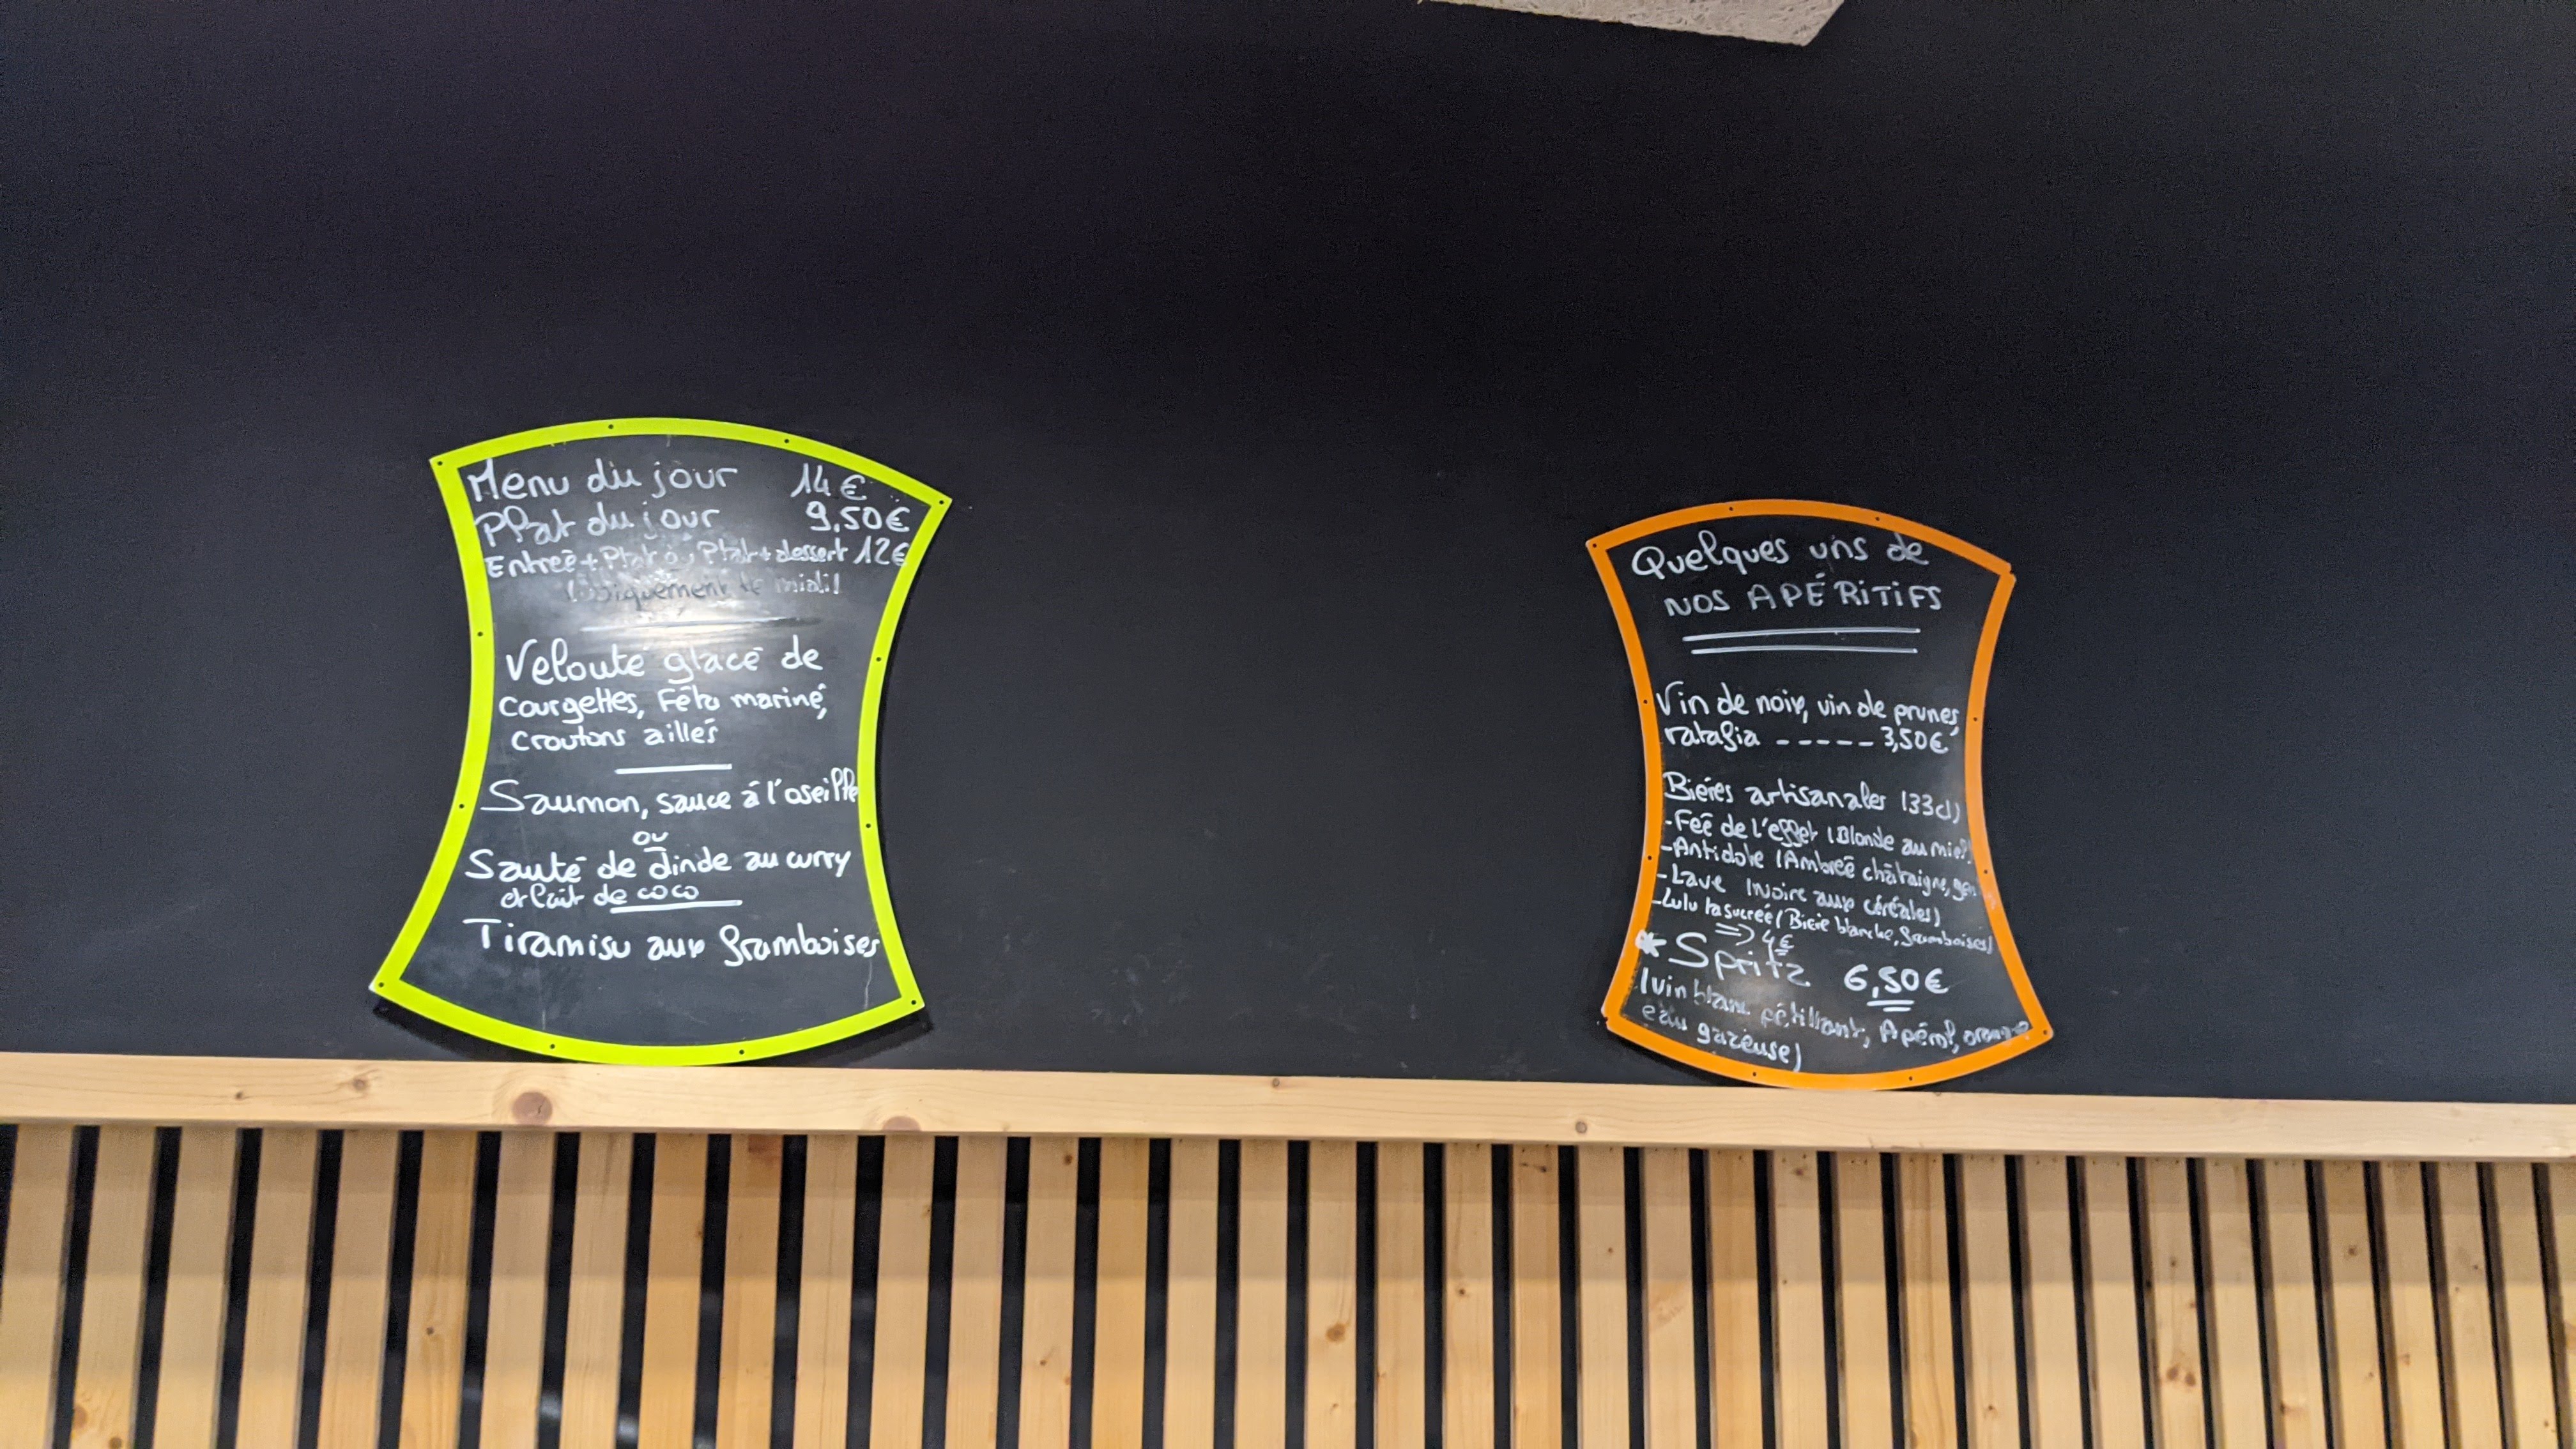 Menu du jour 14€
Plat du jour 9,50€
Entrée + Plat ou Plat + dessert 12€
(Uniquement le midi)
Velouté glacé de
courgettes, Féta mariné,
croutons aillés
Saumon, sauce à l'oseille
ou
Sauté de dinde au curry
et lait de coco
Tiramisu aux framboises
Quelques uns de
NOS APÉRITIFS
Vin de noix, vin de prunes,
ratafia ----- 3,50€
Bières artisanales (33cl)
-Fée de l'effet (Blonde au miel)
-Antidote (Ambrée châtaigne,
-Lave (Noire aux céréales)
-Lulu la sucrée (Bière blanche, framboises)
=> 4€
* Spritz 6,50€
(vin blanc pétillant, Apérol, orange
eau gazeuse)